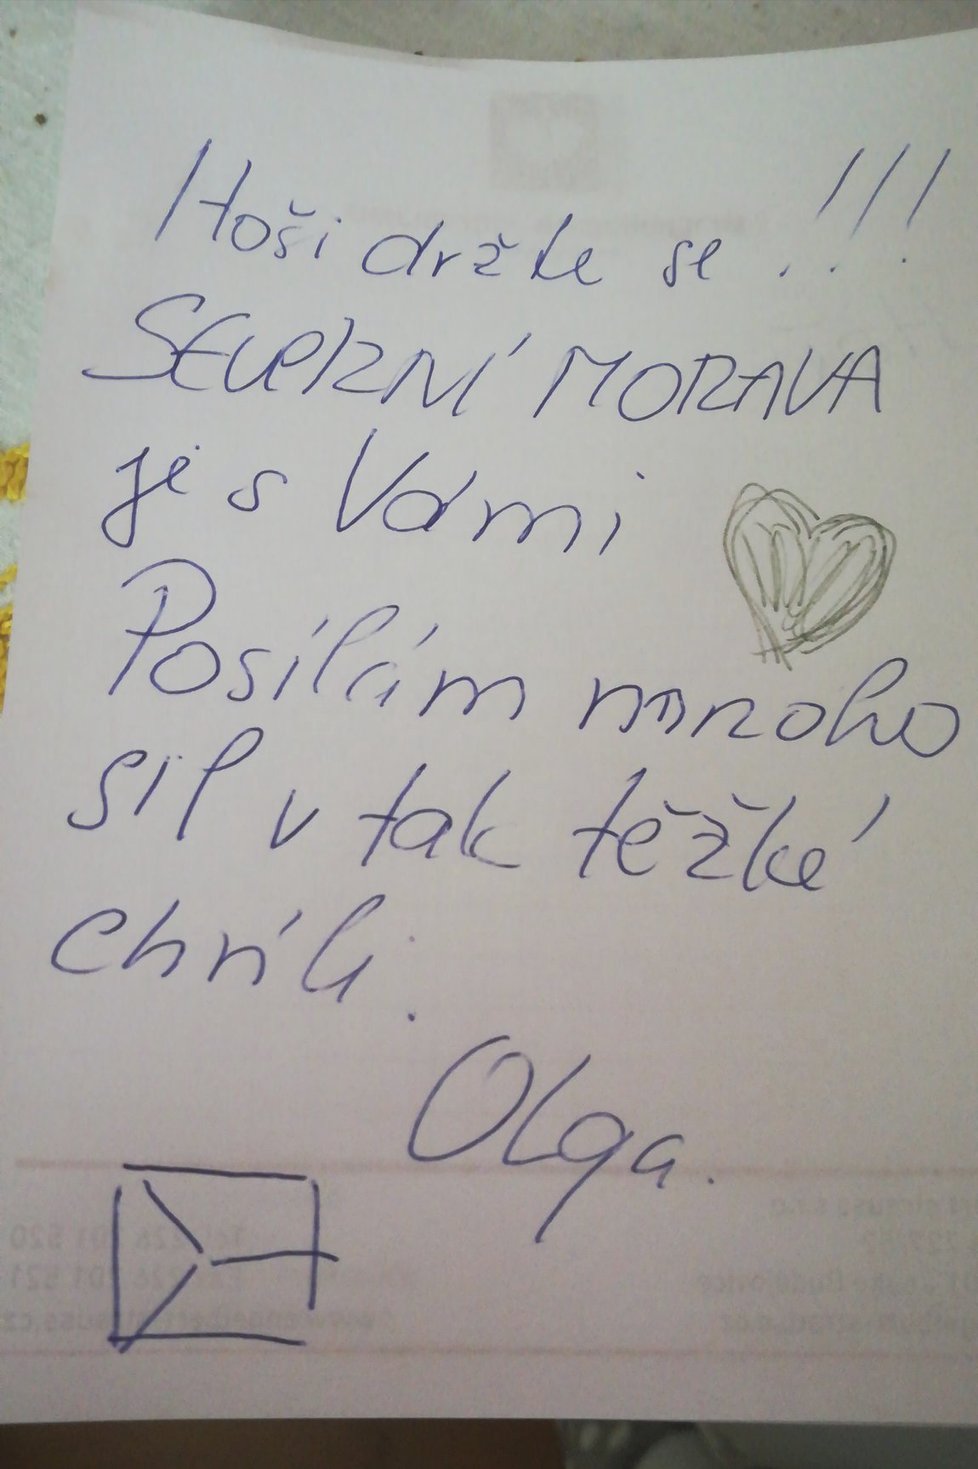 Hoši držte se !!!
SEVERNÍ MORAVA
je s Vámi
Posílám mnoho
sil v tak těžké
chvíli.
Olga.